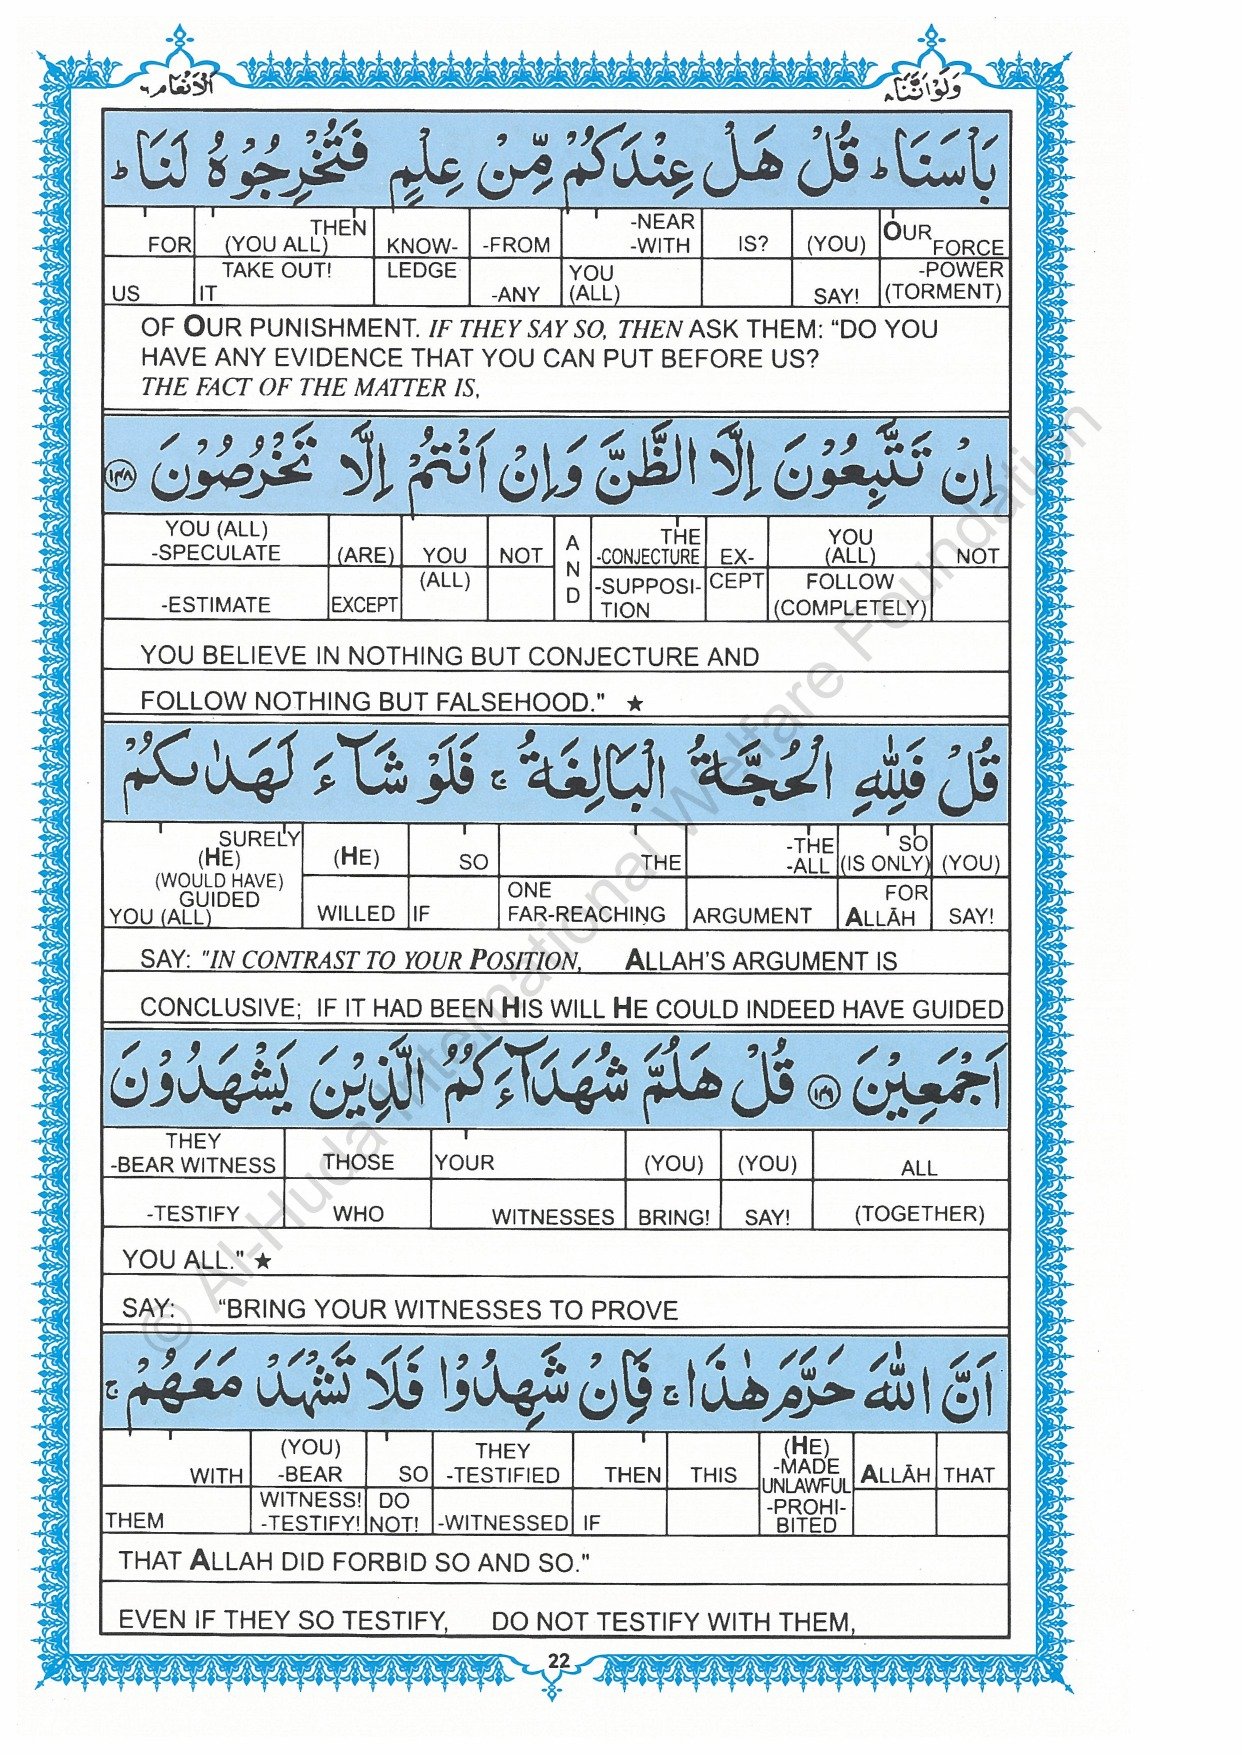 الانعام ٦
ولواننا ٨
بَاْسَنَا ؕ قُلْ هَلْ عِنْدَكُمْ مِّنْ عِلْمٍ فَتُخْرِجُوْهُ لَنَا ؕ
FOR THEN (YOU ALL) KNOW- -FROM -NEAR -WITH IS? (YOU) OUR FORCE
US TAKE OUT! IT LEDGE -ANY YOU (ALL) SAY! -POWER (TORMENT)
OF OUR PUNISHMENT. IF THEY SAY SO, THEN ASK THEM: “DO YOU
HAVE ANY EVIDENCE THAT YOU CAN PUT BEFORE US?
THE FACT OF THE MATTER IS,
اِنْ تَتَّبِعُوْنَ اِلَّا الظَّنَّ وَاِنْ اَنْتُمْ اِلَّا تَخْرُصُوْنَ ١٤٨
YOU (ALL) -SPECULATE (ARE) YOU NOT AND THE -CONJECTURE EX- YOU (ALL) NOT
-ESTIMATE EXCEPT (ALL) -SUPPOSI- TION CEPT FOLLOW (COMPLETELY)
YOU BELIEVE IN NOTHING BUT CONJECTURE AND
FOLLOW NOTHING BUT FALSEHOOD." ★
قُلْ فَلِلّٰهِ الْحُجَّةُ الْبَالِغَةُ ۚ فَلَوْ شَآءَ لَهَدٰىكُمْ
SURELY (HE) (WOULD HAVE) (HE) SO THE -THE -ALL SO (IS ONLY) (YOU)
GUIDED YOU (ALL) WILLED IF ONE FAR-REACHING ARGUMENT FOR ALLĀH SAY!
SAY: "IN CONTRAST TO YOUR POSITION, ALLAH’S ARGUMENT IS
CONCLUSIVE; IF IT HAD BEEN HIS WILL HE COULD INDEED HAVE GUIDED
اَجْمَعِيْنَ ١٤٩ قُلْ هَلُمَّ شُهَدَآءَكُمُ الَّذِيْنَ يَشْهَدُوْنَ
THEY -BEAR WITNESS THOSE YOUR (YOU) (YOU) ALL
-TESTIFY WHO WITNESSES BRING! SAY! (TOGETHER)
YOU ALL." ★
SAY: “BRING YOUR WITNESSES TO PROVE
اَنَّ اللّٰهَ حَرَّمَ هٰذَا ۚ فَاِنْ شَهِدُوْا فَلَا تَشْهَدْ مَعَهُمْ ۚ
WITH (YOU) -BEAR SO THEY -TESTIFIED THEN THIS (HE) -MADE UNLAWFUL ALLĀH THAT
THEM WITNESS! -TESTIFY! DO NOT! -WITNESSED IF -PROHI- BITED
THAT ALLAH DID FORBID SO AND SO."
EVEN IF THEY SO TESTIFY, DO NOT TESTIFY WITH THEM,
22
© Al-Huda International Welfare Foundation